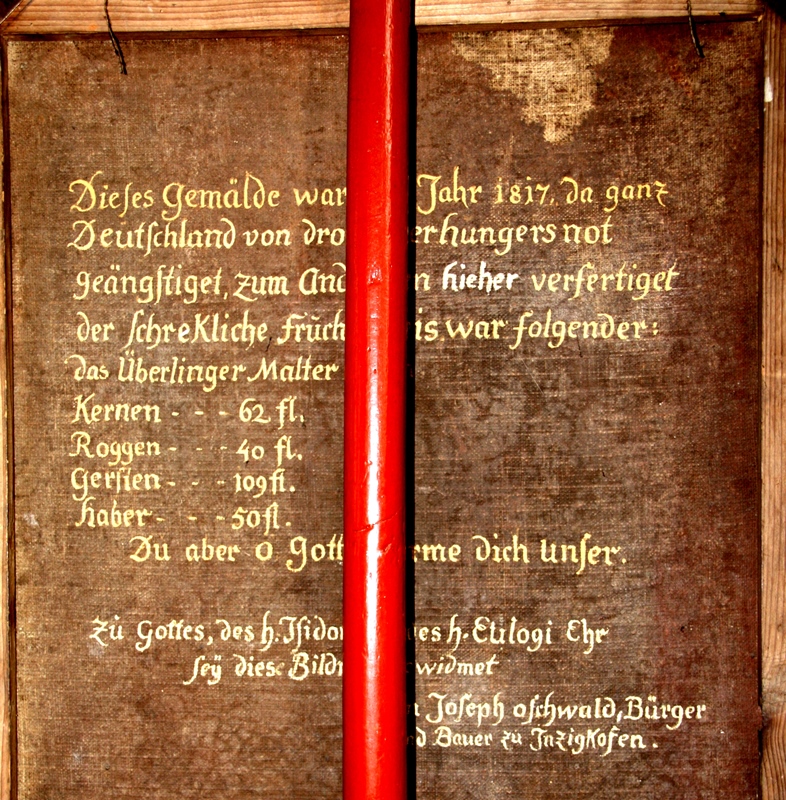 Dieses Gemälde war Jahr 1817, da ganz
Deutschland von hungers not
geängstiget, zum hieher verfertiget
der schrekliche war folgender:
das Überlinger Malter
Kernen - - - 62 fl.
Roggen - - - 40 fl.
Gersten - - - 109 fl.
haber - - - 50 fl.
Du aber O dich Unser.
Zu Gottes, des h. h. Eulogi Ehr
seÿ diese widmet
Joseph oschwald, Bürger
Bauer zu Inzigkofen.